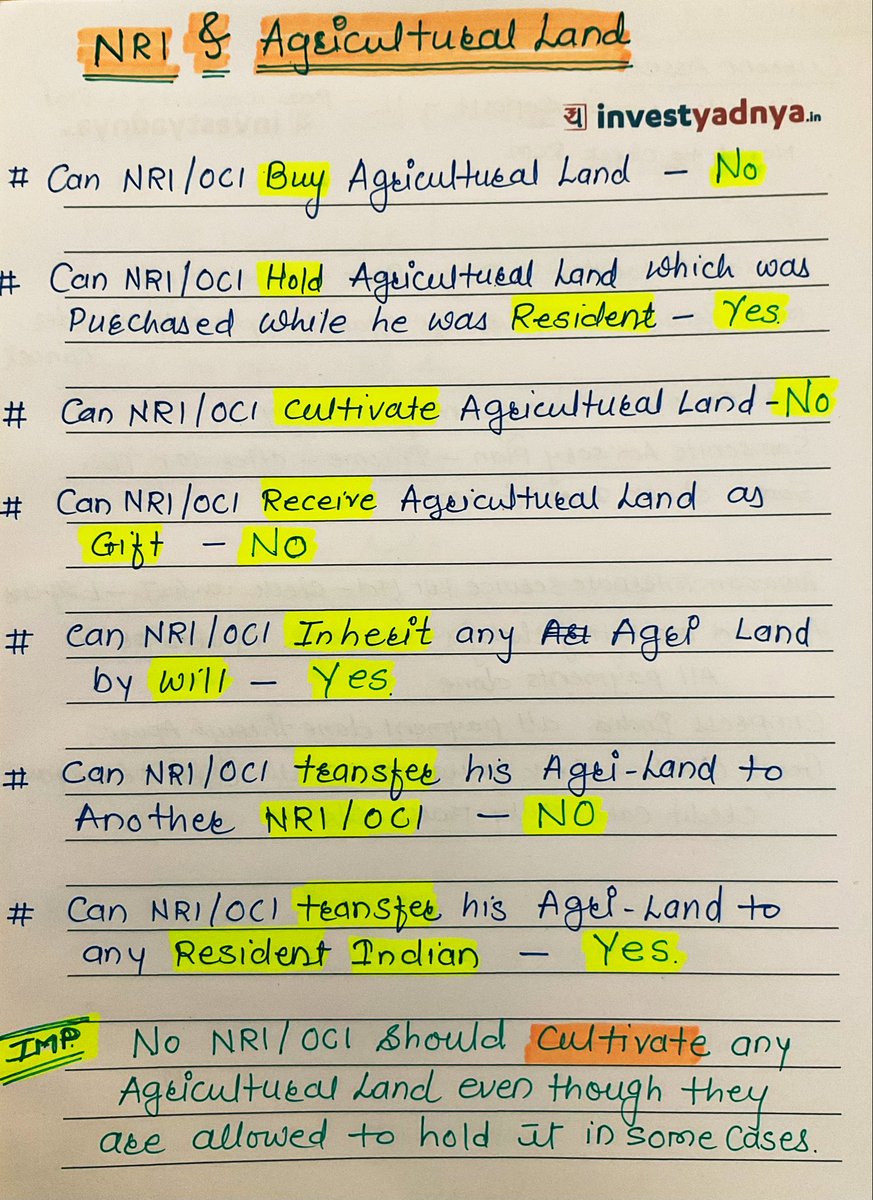 NRI & Agricultural Land
य investyadnya.in
# Can NRI/OCI Buy Agricultural Land - No
# Can NRI/OCI Hold Agricultural Land which was
Purchased while he was Resident - Yes.
# Can NRI/OCI Cultivate Agricultural Land - No
# Can NRI/OCI Receive Agricultural Land as
Gift - NO
# Can NRI/OCI Inherit any Agri Land
by Will - Yes.
# Can NRI/OCI transfer his Agri-Land to
Another NRI/OCI - NO
# Can NRI/OCI transfer his Agri-Land to
any Resident Indian - Yes.
IMP. No NRI/OCI should Cultivate any
Agricultural Land even though they
are allowed to hold it in some cases.